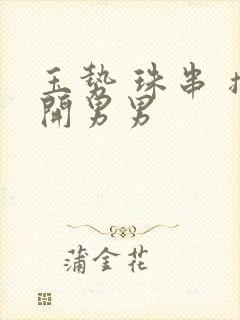 玉势 珠串 扌
開男男
蒲金花